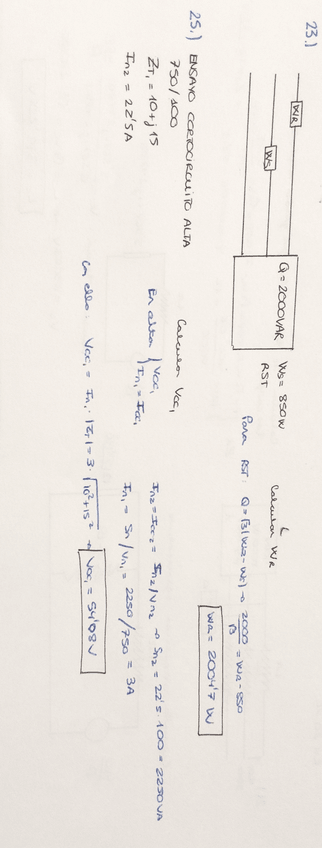 23.)
WR
WS
Q = 2000VAR
WS = 850W
RST
Calcular WR
Para RST: Q = √3 (WR - WS) → 2000/√3 = WR - 850
WR = 2004'7 W
25.) ENSAYO CORTOCIRCUITO ALTA
750/100
ZT1 = 10 + j 15
In2 = 22'5A
Calcular Vcc1
En alta { Vcc1
In1 = Icc1
In2 = Icc2 = Sn2/Vn2 → Sn2 = 22'5 · 100 = 2250VA
In1 = Sn/Vn1 = 2250/750 = 3A
Con ello: Vcc1 = In1 · |ZT| = 3 · √10²+15² → Vcc1 = 54'08V